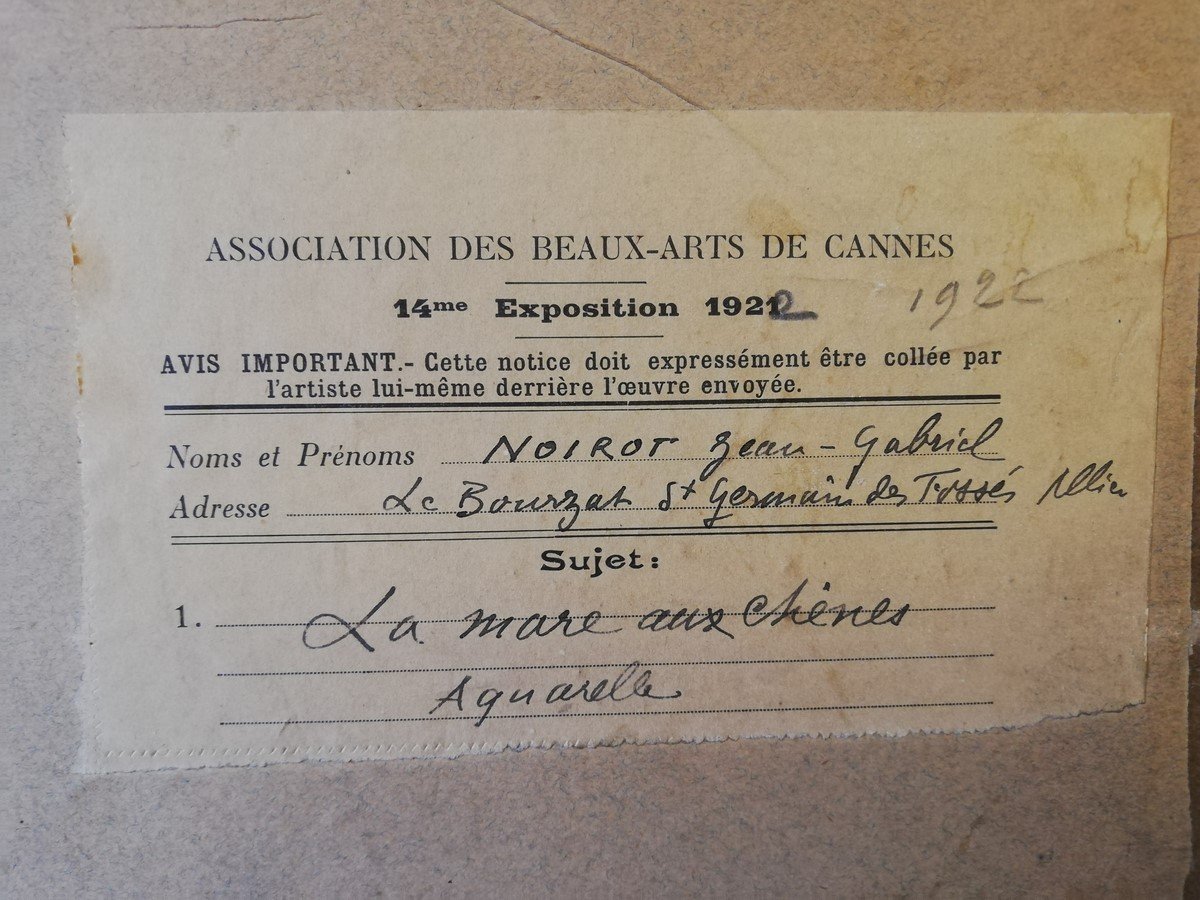 ASSOCIATION DES BEAUX-ARTS DE CANNES
14me Exposition 1922 1922
AVIS IMPORTANT.- Cette notice doit expressément être collée par
l'artiste lui-même derrière l'œuvre envoyée.
Noms et Prénoms NOIROT Jean-Gabriel
Adresse Le Bourzat St Germain des Fossés Allier
Sujet:
1. La mare aux Chênes
Aquarelle